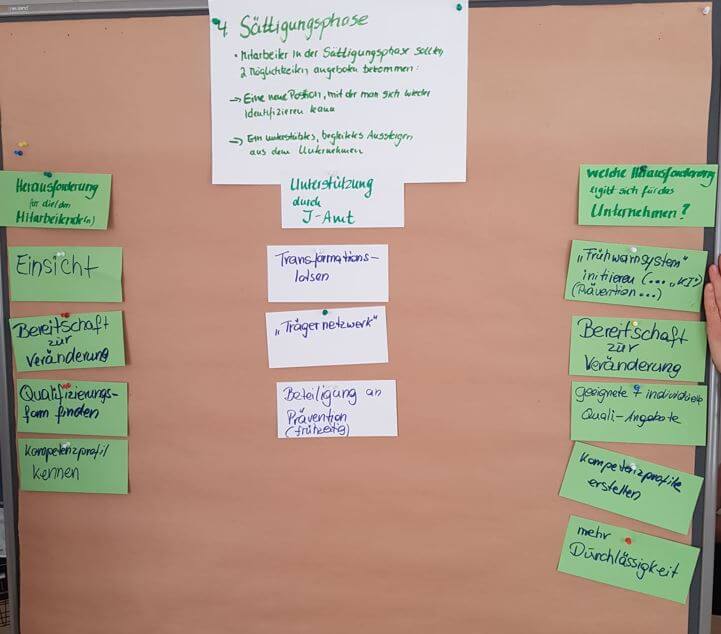 4 Sättigungsphase
• Mitarbeiter in der Sättigungsphase sollten
2 Möglichkeiten angeboten bekommen:
→ Eine neue Position, mit der man sich wieder
identifizieren kann
→ Ein unterstütztes, begleitetes Aussteigen
aus dem Unternehmen
Herausforderung
für die/den
Mitarbeitende(n)
Einsicht
Bereitschaft
zur
Veränderung
Qualifizierungs-
form finden
Kompetenzprofil
kennen
Unterstützung
durch
J-Amt
Transformations-
lotsen
„Trägernetzwerk"
Beteiligung an
Prävention
(frühzeitig)
welche Herausforderung
ergibt sich für das
Unternehmen?
„Frühwarnsystem"
initiieren (... „KI")
(Prävention...)
Bereitschaft
zur
Veränderung
geeignete + individuelle
Quali-Angebote
Kompetenzprofile
erstellen
mehr
Durchlässigkeit